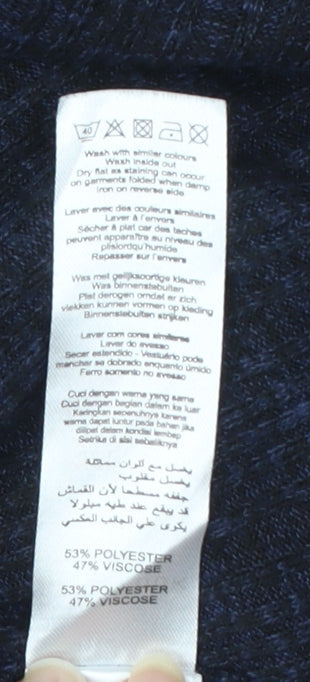 40
Wash with similar colours
Wash inside out
Dry flat as staining can occur
on garments folded when damp
Iron on reverse side
Laver avec des couleurs similaires
Laver à l'envers
Sécher à plat car des taches
peuvent apparaître au niveau des
plisiordqu'humide
Repasser sur l'envers
Was met gelijksoortige kleuren
Was binnenstebuiten
Plat drogen omdat er zich
vlekken kunnen vormen op kleding
Binnenstebuiten strijken
Lavar com cores similares
Lavar do avesso
Secar estendido - Vestuário pode
manchar se dobrado enquanto úmido
Ferro somento no avesso
Cuci dengan warna yang sama
Cuci dengan bagian dalam ke luar
Keringkan sepenuhnya karena
warna dapat luntur pada bahan jika
dilipat dalam kondisi lembap
Setrika di sisi sebaliknya
يغسل مع ألوان مماثلة
يغسل مقلوب
جففه مسطحا لأن القماش
قد يبقع عند طيه مبلولا
يكوى على الجانب العكسي
53% POLYESTER
47% VISCOSE
53% POLYESTER
47% VISCOSE